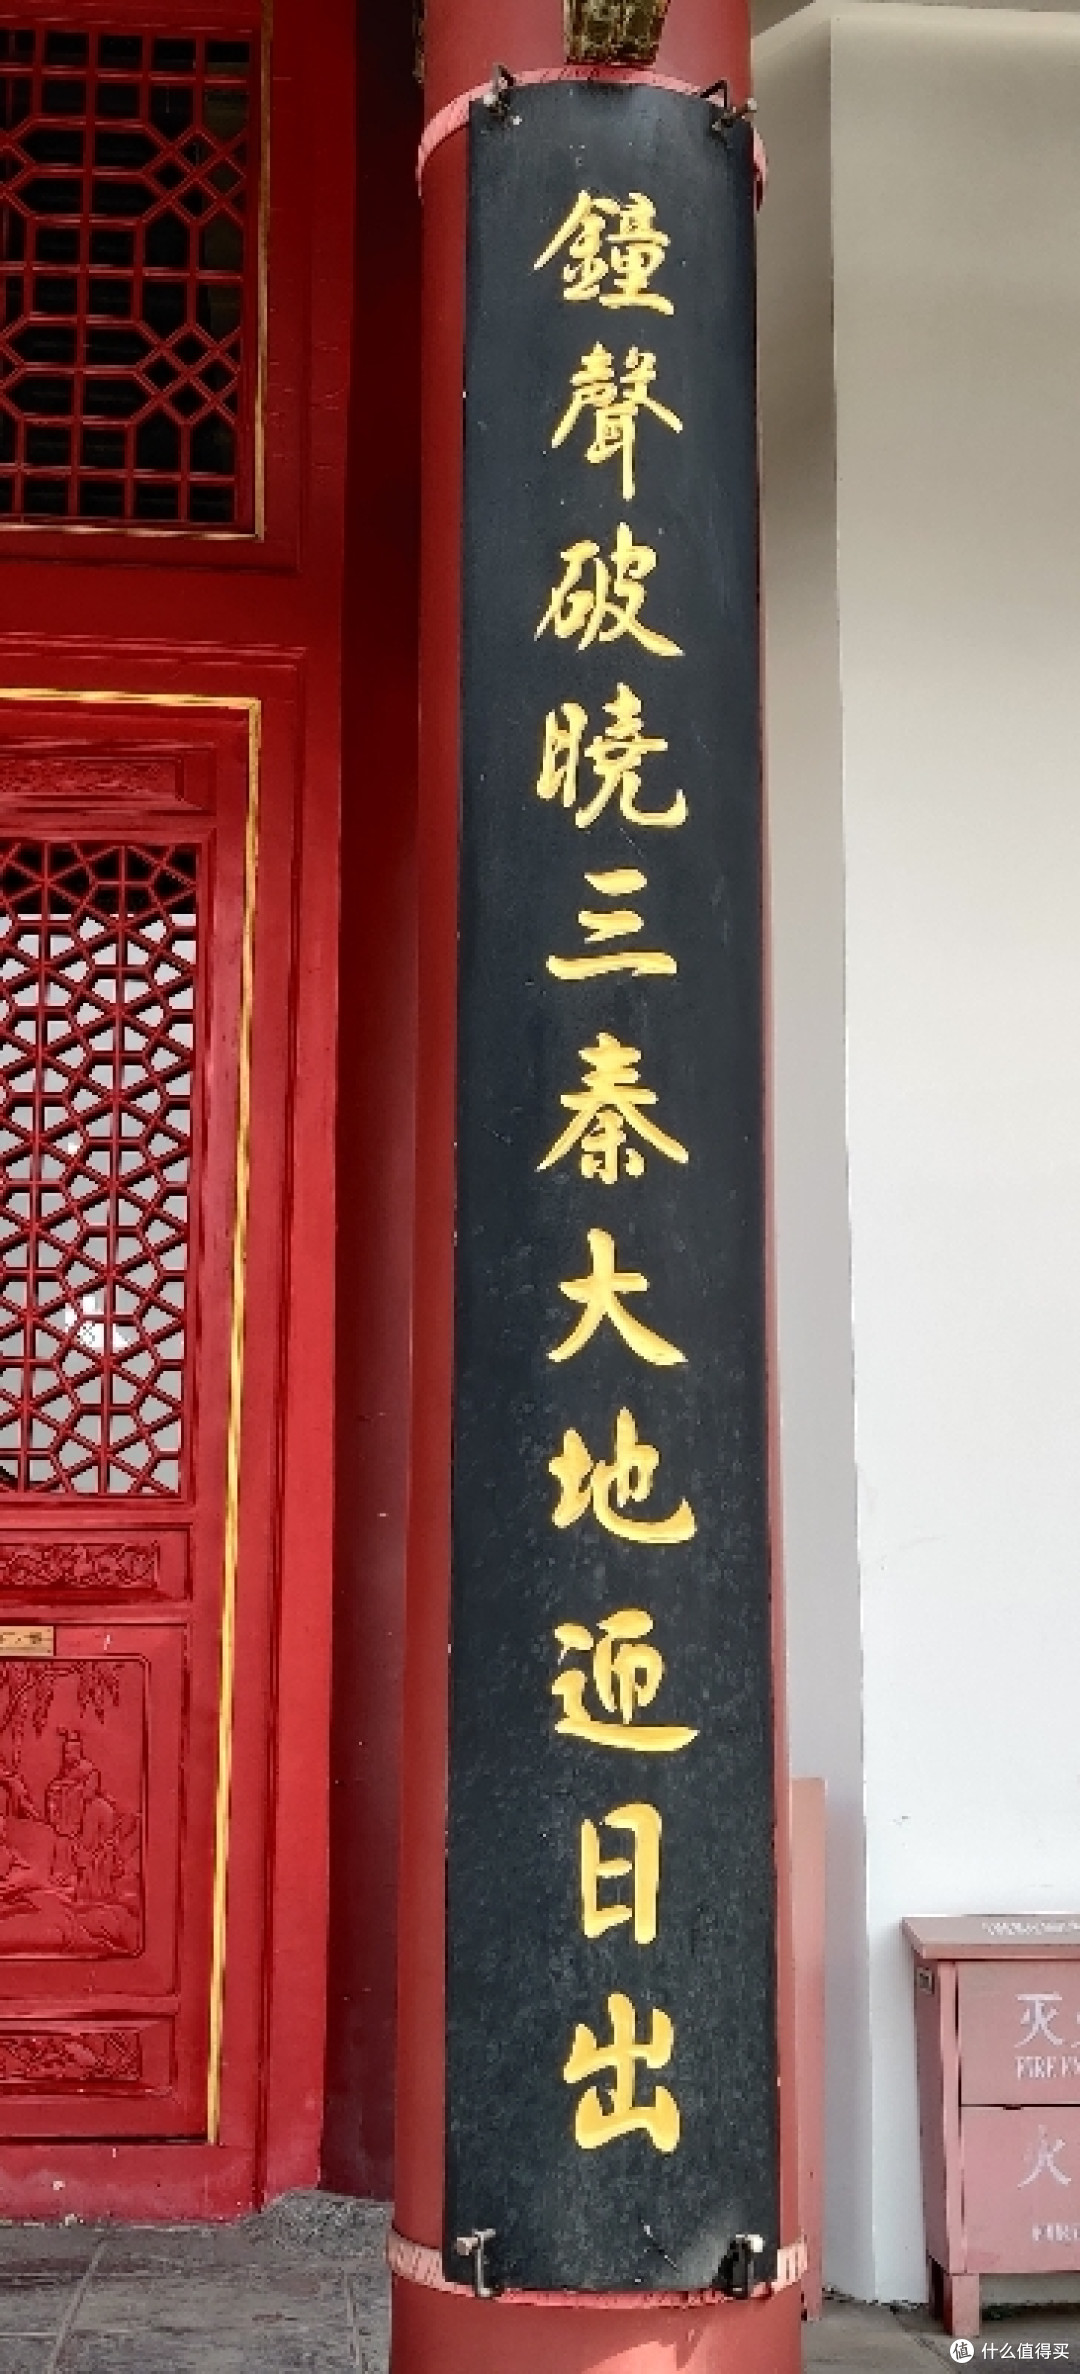 鐘聲破曉三秦大地迎日出
灭
FIRE
火
值 什么值得买